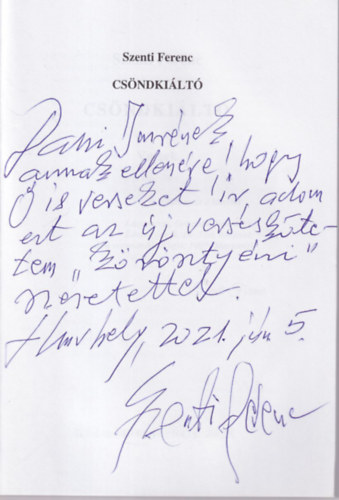 Szenti Ferenc
CSÖNDKIÁLTÓ
Imrének,
annak ellenére, hogy
Ő is verseket ír, adom
ezt az új versesköte-
tem „
szeretettel.
Hmvhely, 2021. jún 5.
Szenti Ferenc